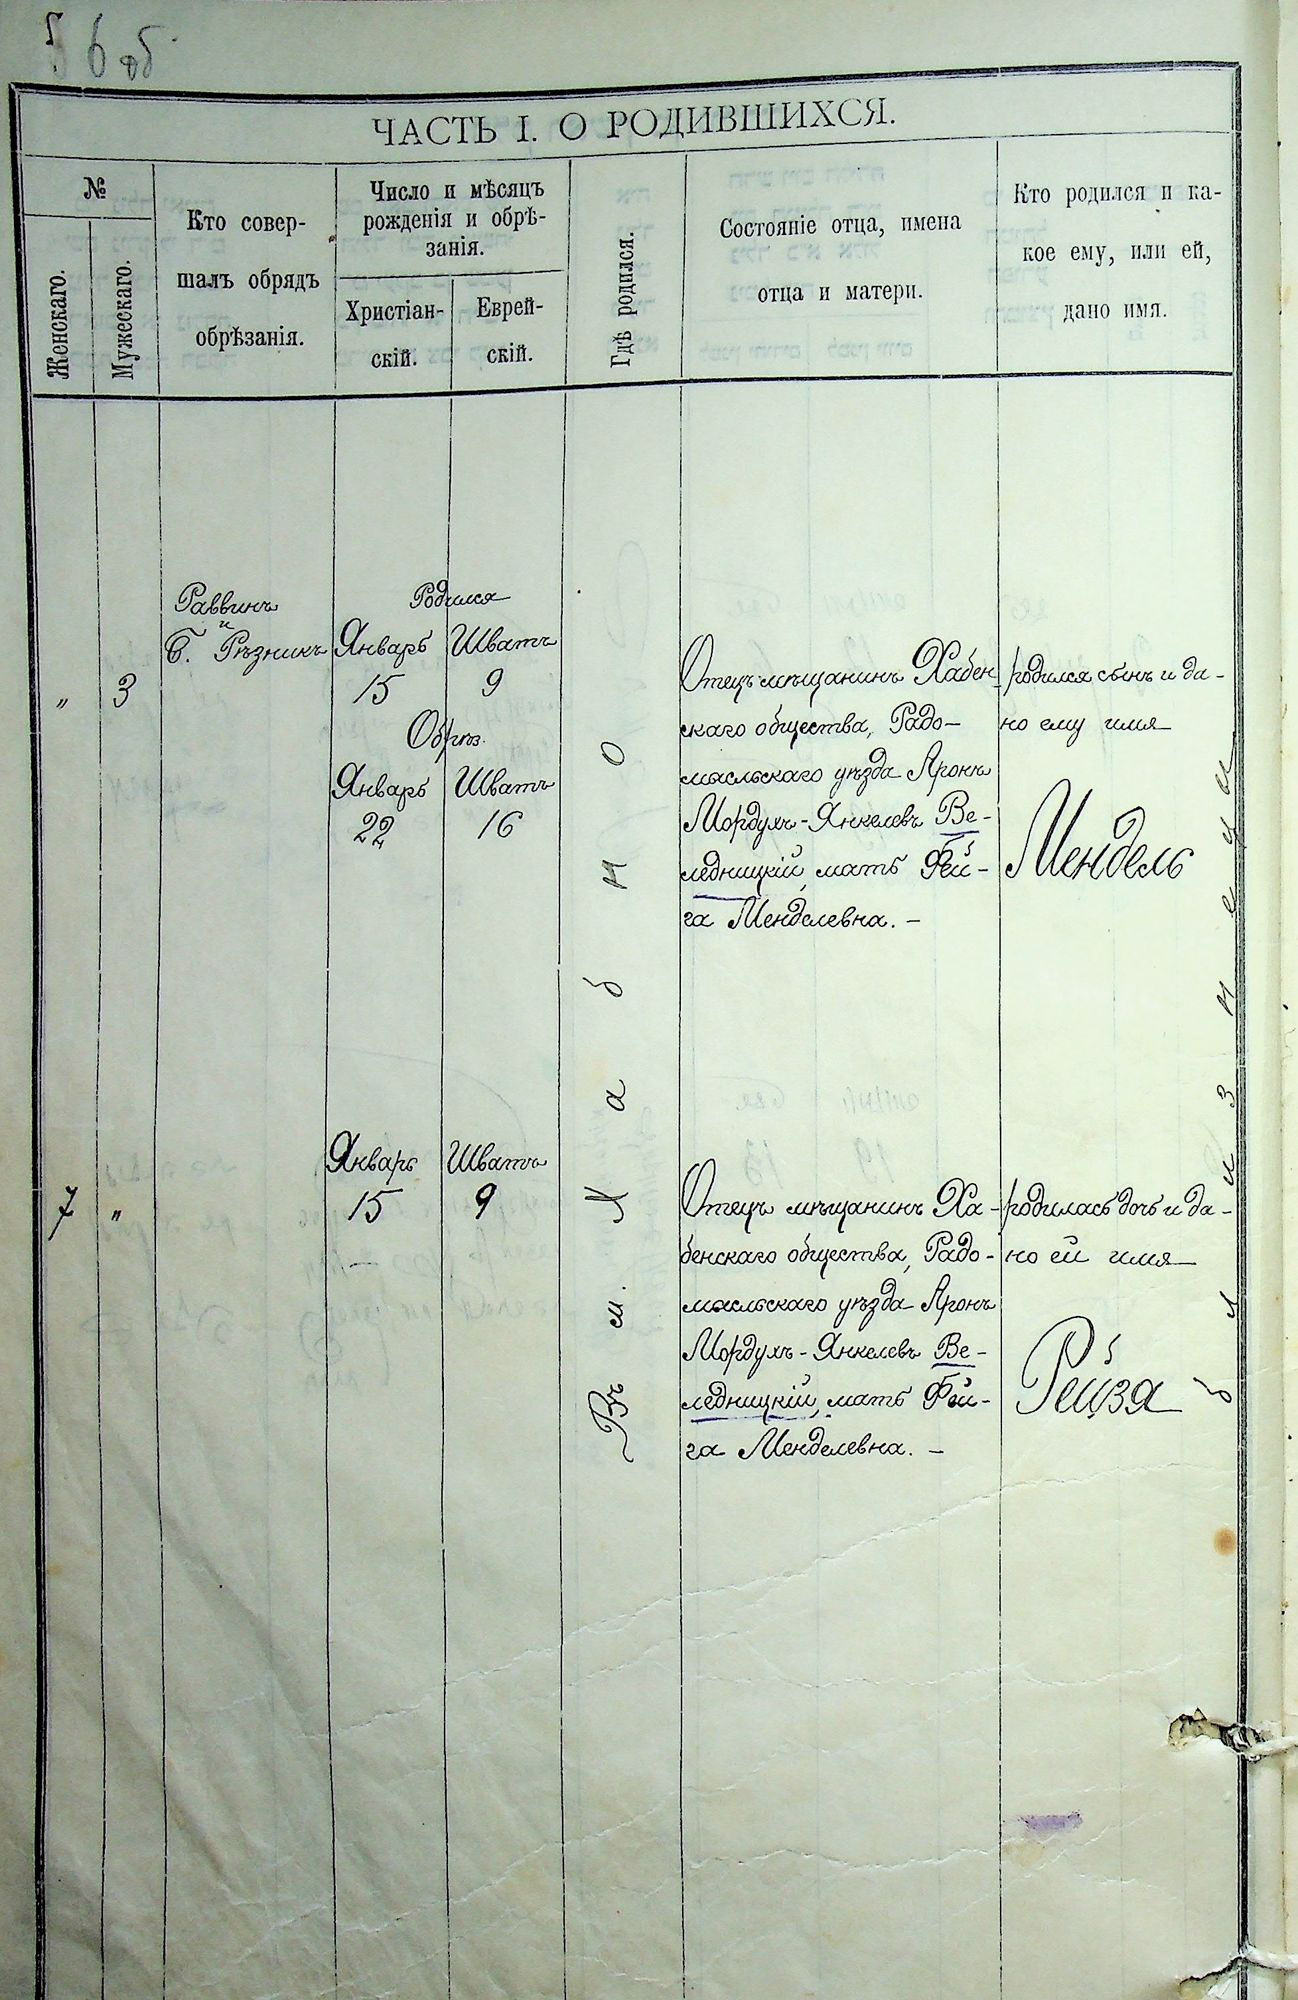 56 об.
ЧАСТЬ I. О РОДИВШИХСЯ.
№
Женскаго.
Мужескаго.
Кто совер-
шалъ обрядъ
обрѣзанія.
Число и мѣсяцъ
рожденія и обрѣ-
занія.
Христіан-
скій.
Еврей-
скій.
Гдѣ родился.
Состояніе отца, имена
отца и матери.
Кто родился и ка-
кое ему, или ей,
дано имя.
„ 3
Раввинъ
и
Б. Рѣзникъ
Родился
Январь Шватъ
15 9
Обрѣз.
Январь Шватъ
22 16
Отецъ мѣщанинъ Хабен-
скаго общества, Радо-
мысльскаго уѣзда Аронъ
Мордухъ-Янкелевъ Ве-
ледницкій, мать Фей-
га Менделевна. –
родился сынъ и да-
но ему имя
Мендель
Въ м. Хабно
7 „
Январь Шватъ
15 9
Отецъ мѣщанинъ Ха-
бенскаго общества, Радо-
мысльскаго уѣзда Аронъ
Мордухъ-Янкелевъ Ве-
ледницкій, мать Фей-
га Менделевна. –
родилась дочь и да-
но ей имя
Рейзя
близнецы